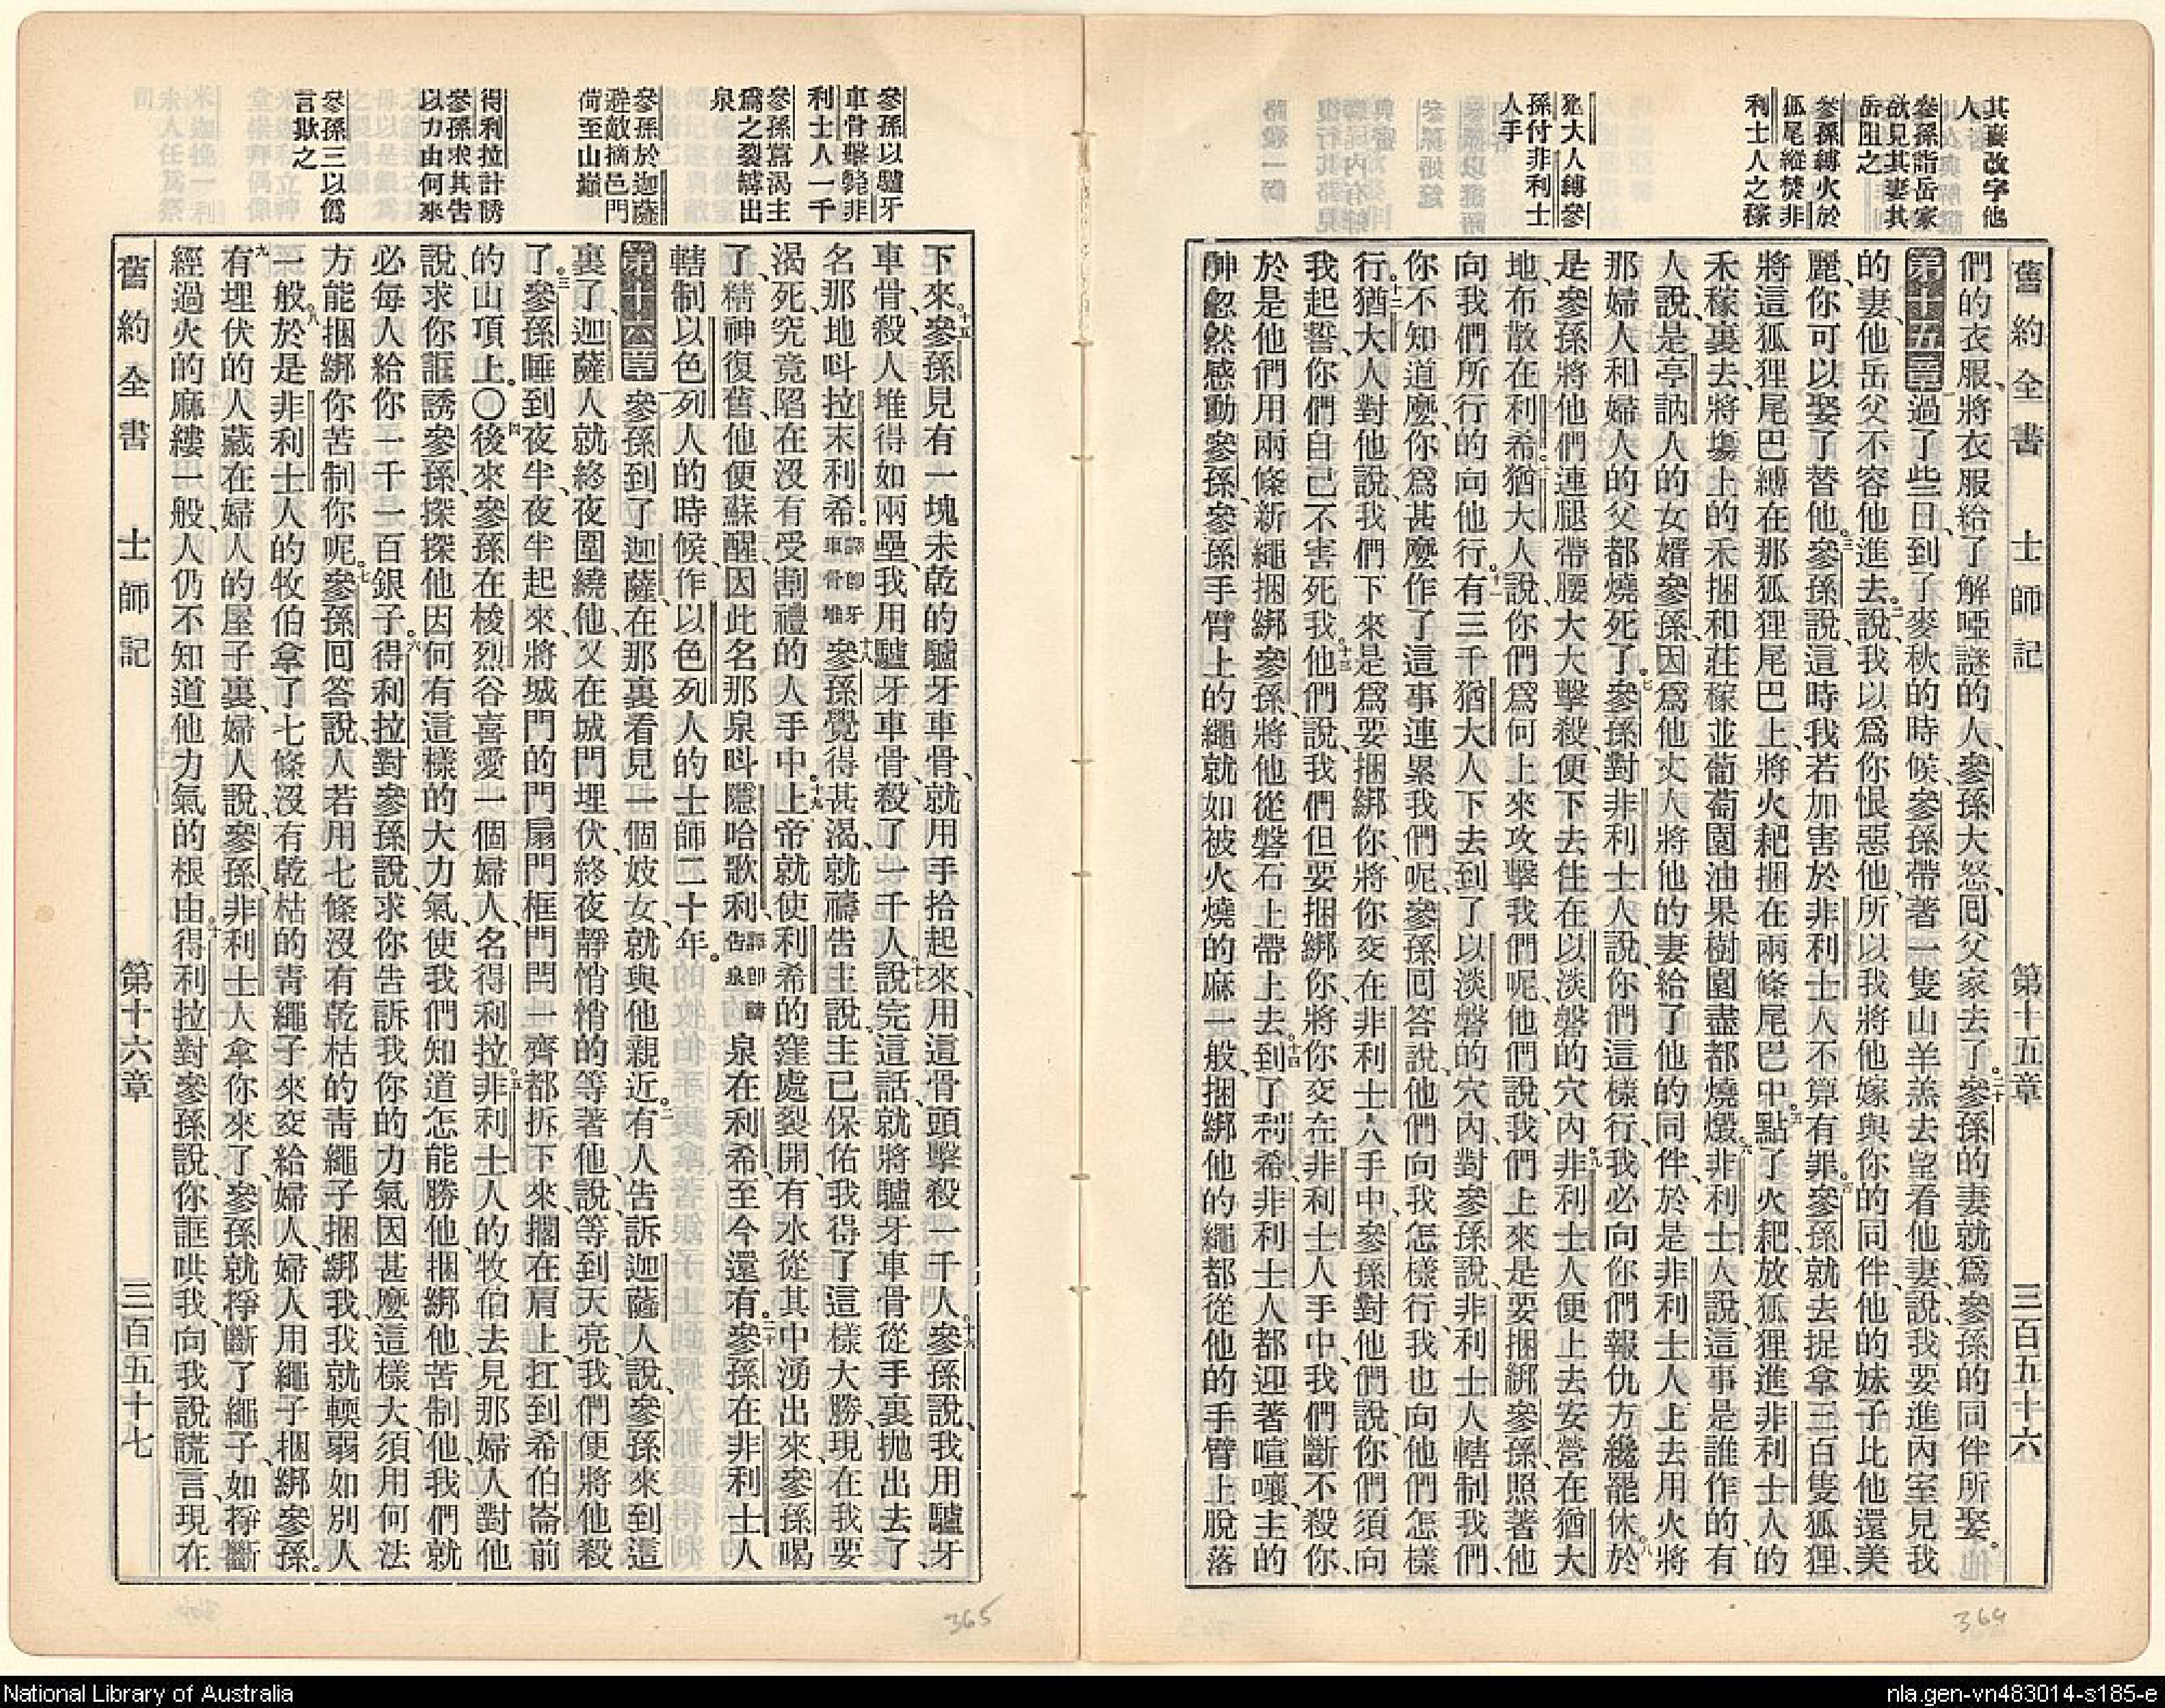 其妻改字他
人
參孫詣岳家
欲見其妻其
岳阻之
參孫縛火於
狐尾縱焚非
利士人之稼
猶大人縛參
孫付非利士
人手
舊約全書 士師記 第十五章 三百五十六
們的衣服、將衣服給了解啞謎的人、參孫大怒、回父家去了。二十參孫的妻就爲參孫的同伴所娶。
第十五章 一過了些日、到了麥秋的時候、參孫帶著一隻山羊羔去望看他妻、說、我要進內室見我
的妻、他岳父不容他進去。二說、我以爲你恨惡他、所以我將他嫁與你的同伴、他的妹子比他還美
麗、你可以娶了替他。三參孫說、這時我若加害於非利士人不算有罪。四參孫就去捉拿三百隻狐狸、
將這狐狸尾巴縛在那狐狸尾巴上、將火耙捆在兩條尾巴中。五點了火耙、放狐狸進非利士人的
禾稼裏去、將塲上的禾捆和莊稼並葡萄園油果樹園盡都燒燬。六非利士人說、這事是誰作的、有
人說、是亭訥人的女婿參孫、因爲他丈人將他的妻給了他的同伴、於是非利士人上去用火將
那婦人和婦人的父都燒死了。七參孫對非利士人說、你們這樣行、我必向你們報仇方纔罷休。八於
是參孫將他們連腿帶腰大大擊殺、便下去住在以淡磐的穴內。九非利士人便上去安營在猶大
地、布散在利希。十猶大人說、你們爲何上來攻擊我們呢、他們說、我們上來是要捆綁參孫、照著他
向我們所行的向他行。十一有三千猶大人下去到了以淡磐的穴內、對參孫說、非利士人轄制我們、
你不知道麼、你爲甚麼作了這事連累我們呢、參孫回答說、他們向我怎樣行、我也向他們怎樣
行。十二猶大人對他說、我們下來是爲要捆綁你、將你交在非利士人手中、參孫對他們說、你們須向
我起誓、你們自己不害死我。十三他們說、我們但要捆綁你、將你交在非利士人手中、我們斷不殺你、
於是他們用兩條新繩捆綁參孫、將他從磐石上帶上去。十四到了利希、非利士人都迎著喧嚷、主的
神忽然感動參孫、參孫手臂上的繩就如被火燒的麻一般、捆綁他的繩都從他的手臂上脫落
364
參孫以驢牙
車骨擊斃非
利士人一千
參孫爲渴主
爲之裂罅出
泉
參孫於迦薩
避敵摘邑門
荷至山巔
得利拉計誘
參孫求其告
以力由何來
參孫三以僞
言欺之
下來。十五參孫見有一塊未乾的驢牙車骨、就用手拾起來、用這骨頭擊殺一千人。十六參孫說、我用驢牙
車骨、殺人堆得如兩壘、我用驢牙車骨、殺了一千人。十七說完這話、就將驢牙車骨從手裏拋出去了、
名那地呌拉末利希。譯卽牙車骨堆十八參孫覺得甚渴、就禱告主說、主已保佑我得了這樣大勝、現在我要
渴死、究竟陷在沒有受割禮的人手中。十九上帝就使利希的窪處裂開、有水從其中湧出來、參孫喝
了、精神復舊、他便蘇醒、因此名那泉呌隱哈歌利、譯卽禱告泉泉在利希、至今還有。二十參孫在非利士人
轄制以色列人的時候、作以色列人的士師二十年。
第十六章 一參孫到了迦薩、在那裏看見一個妓女、就與他親近。二有人告訴迦薩人說、參孫來到這
裏了、迦薩人就終夜圍繞他、又在城門埋伏、終夜靜悄悄的等著他、說、等到天亮、我們便將他殺
了。三參孫睡到夜半、夜半起來、將城門的門扇門框門閂一齊都拆下來、擱在肩上、扛到希伯崙前
的山頂上。〇四後來參孫在梭烈谷喜愛一個婦人、名得利拉。五非利士人的牧伯去見那婦人對他
說、求你誆誘參孫、探探他因何有這樣的大力氣、使我們知道怎能勝他、捆綁他、苦制他、我們就
必每人給你一千一百銀子。六得利拉對參孫說、求你告訴我、你的力氣因甚麼這樣大、須用何法
方能捆綁你苦制你呢。七參孫回答說、人若用七條沒有乾枯的靑繩子捆綁我、我就輭弱如別人
一般。八於是非利士人的牧伯拿了七條沒有乾枯的靑繩子來交給婦人、婦人用繩子捆綁參孫。
九有埋伏的人藏在婦人的屋子裏、婦人說、參孫、非利士人拿你來了、參孫就掙斷了繩子、如掙斷
經過火的麻縷一般、人仍不知道他力氣的根由。十得利拉對參孫說、你誆哄我、向我說謊言、現在
舊約全書 士師記 第十六章 三百五十七
365
National Library of Australia
nla.gen-vn483014-s185-e